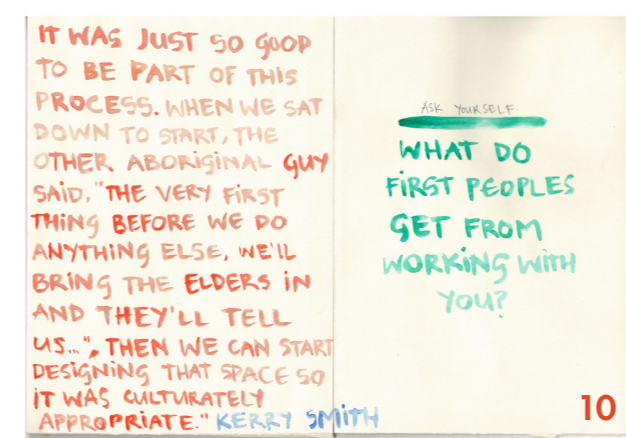 IT WAS JUST SO GOOD
TO BE PART OF THIS
PROCESS. WHEN WE SAT
DOWN TO START, THE
OTHER ABORIGINAL GUY
SAID, "THE VERY FIRST
THING BEFORE WE DO
ANYTHING ELSE, WE'LL
BRING THE ELDERS IN
AND THEY'LL TELL
US...", THEN WE CAN START
DESIGNING THAT SPACE SO
IT WAS CULTURATELY
APPROPRIATE." KERRY SMITH
ASK YOURSELF
WHAT DO
FIRST PEOPLES
GET FROM
WORKING WITH
YOU?
10